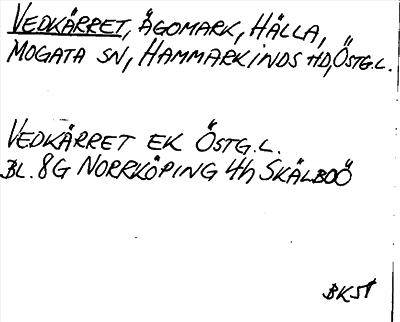 VEDKÄRRET, ÄGOMARK, HÄLLA,
MOGATA SN, HAMMARKINDS HD, ÖSTG.L.
VEDKÄRRET EK ÖSTG.L.
BL. 8G NORRKÖPING 4h SKÄLBOÖ